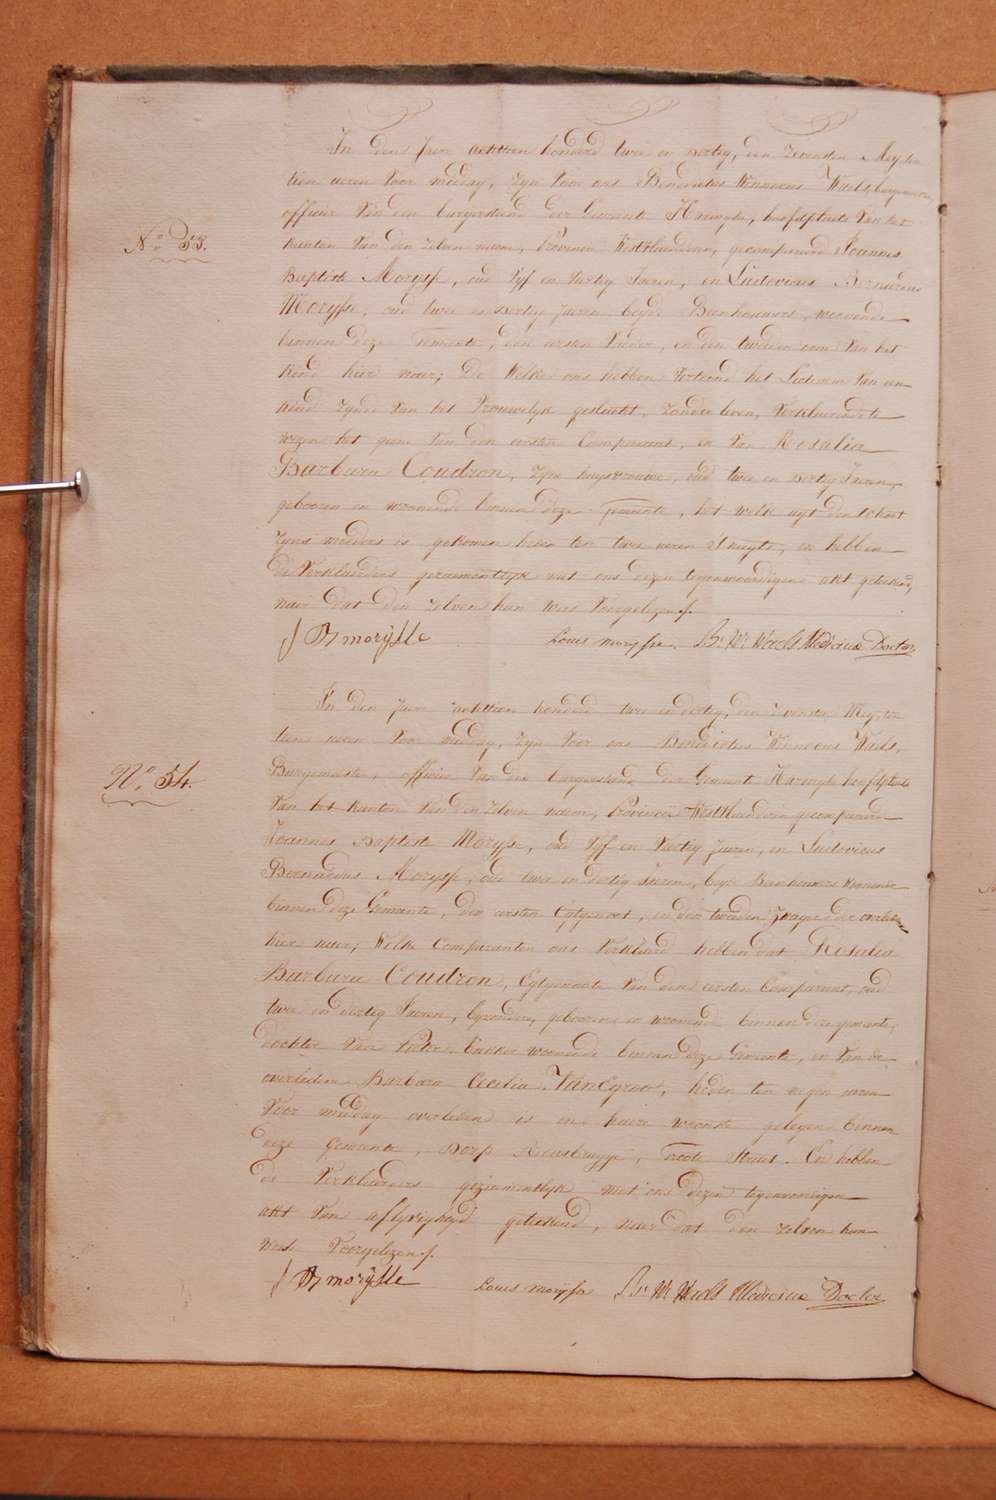 In den Jare achttien honderd twee en dertig, den zevensten Mey, ten
tien ueren Voor middag, zyn Voor ons Benedictus Winnocus Waels, burgemeester,
officier Van den burgerstand der Gemeente Haringhe, hoofdplaets Van het
N.° 53.
kanton Van den zelven naem, Provincie Westvlaenderen, gecompareerd Joannes
Baptiste Morysse, oud Vyf en Veertig Jaeren, en Ludovicus Bernardus
Morysse, oud twee en dertig Jaeren, beyde Beenhouwers, woonende
binnen deze Gemeente, den eersten Vader, en den tweeden oom Van het
kind hier naer; De Welke ons hebben Vertoond het Lichaem Van een
kind zynde Van het Vrouwelyk geslacht, zonder leven, Verklaerende te
wezen het gene Van den eersten Comparant, en Van Rosalia
Barbara Coudron, zyne huysvrouwe, oud twee en dertig Jaeren,
gebooren en woonende binnen deze gemeente, het welk uyt den schoot
zyns moeders is gekomen heden ten twee ueren S'nagts, en hebben
de Verklaerders gezaementlyk met ons dezen tegenwoordigen akt geteekend,
naer dat den zelven hun was Voorgelezen ./.
J B morÿsse Louis morysse Bt. Wt. Waels Medicinae Doctor
In den Jare achttien honderd twee en dertig, den zevensten Mey, ten
tien ueren Voor middag, zyn Voor ons Benedictus Winnocus Waels,
N.° 54.
Burgemeester, officier Van den burgerstand der Gemeente Haringhe hoofdplaets
Van het kanton Van den zelven naem, Provincie Westvlaenderen gecompareerd
Joannes Baptiste Morysse, oud Vyf en Veertig Jaeren, en Ludovicus
Bernardus Morysse, oud twee en dertig Jaeren, beyde Beenhouwers woonende
binnen deze Gemeente, den eersten Egtgenoot, en den tweeden Zwager der overledene
hier naer; Welke Comparanten ons Verklaerd hebben dat Rosalia
Barbara Coudron, Egtgenoote Van den eersten Comparant, oud
twee en dertig Jaeren, byzondere, gebooren en woonende binnen deze gemeente,
dochter Van Pieter, bakker woonende binnen deze Gemeente, en Van de
overledene Barbara Cecilia VanEgroo, heden ten negen ueren
Voor middag overleden is in haere woonste gelegen binnen
deze Gemeente, Dorp Rousbrugge, Groote Straet. En hebben
de Verklaerders gezaementlyk met ons dezen tegenwoordigen
akt Van aflyvigheyd geteekend, naer dat den zelven hun
was Voorgelezen ./.
J B morÿsse Louis morysse Bt. Wt. Waels Medicinae Doctor